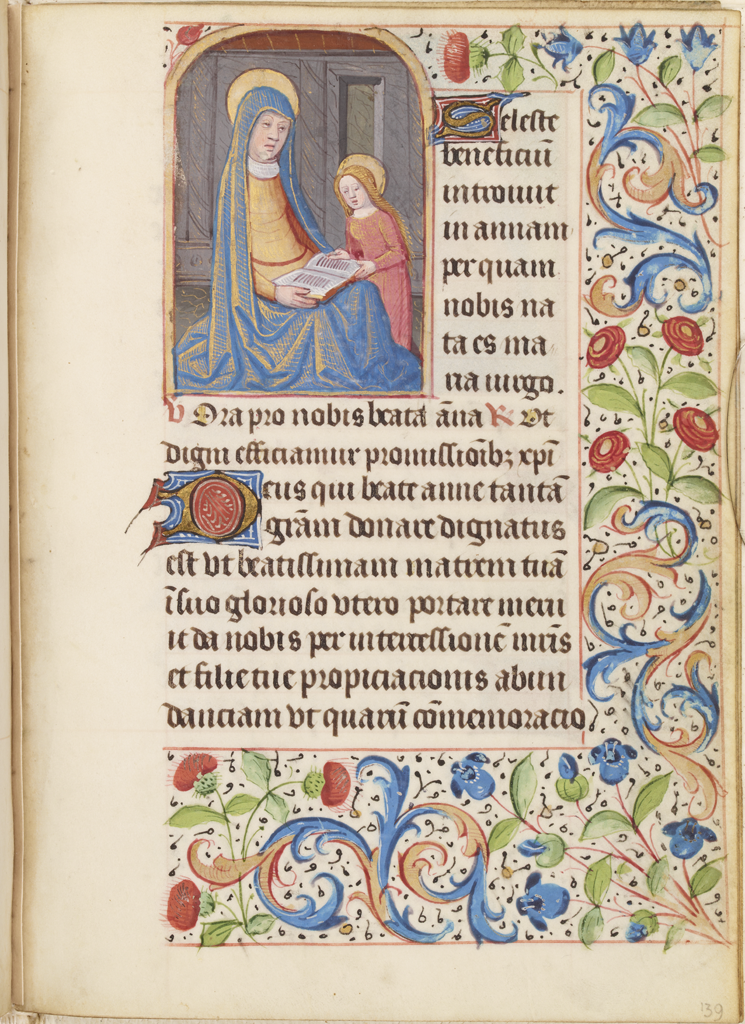 Seleste
beneficiū
introiuit
in annam
per quam
nobis na
ta es ma
ria uirgo.
V Ora pro nobis beata āna R Vt
digni efficiamur promissiōibꝫ xpī
Deus qui beate anne tantā
grām donare dignatus
est vt beatissimam matrem tuā
ī suo glorioso vtero portare meru
it da nobis per intercessionē mr̄is
et filie tue propiciacionis abun
danciam vt quarū cōmemoracio
139